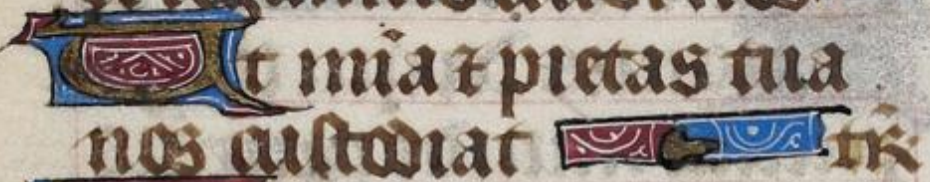 Et mia ⁊ pietas tua
nos custodiat